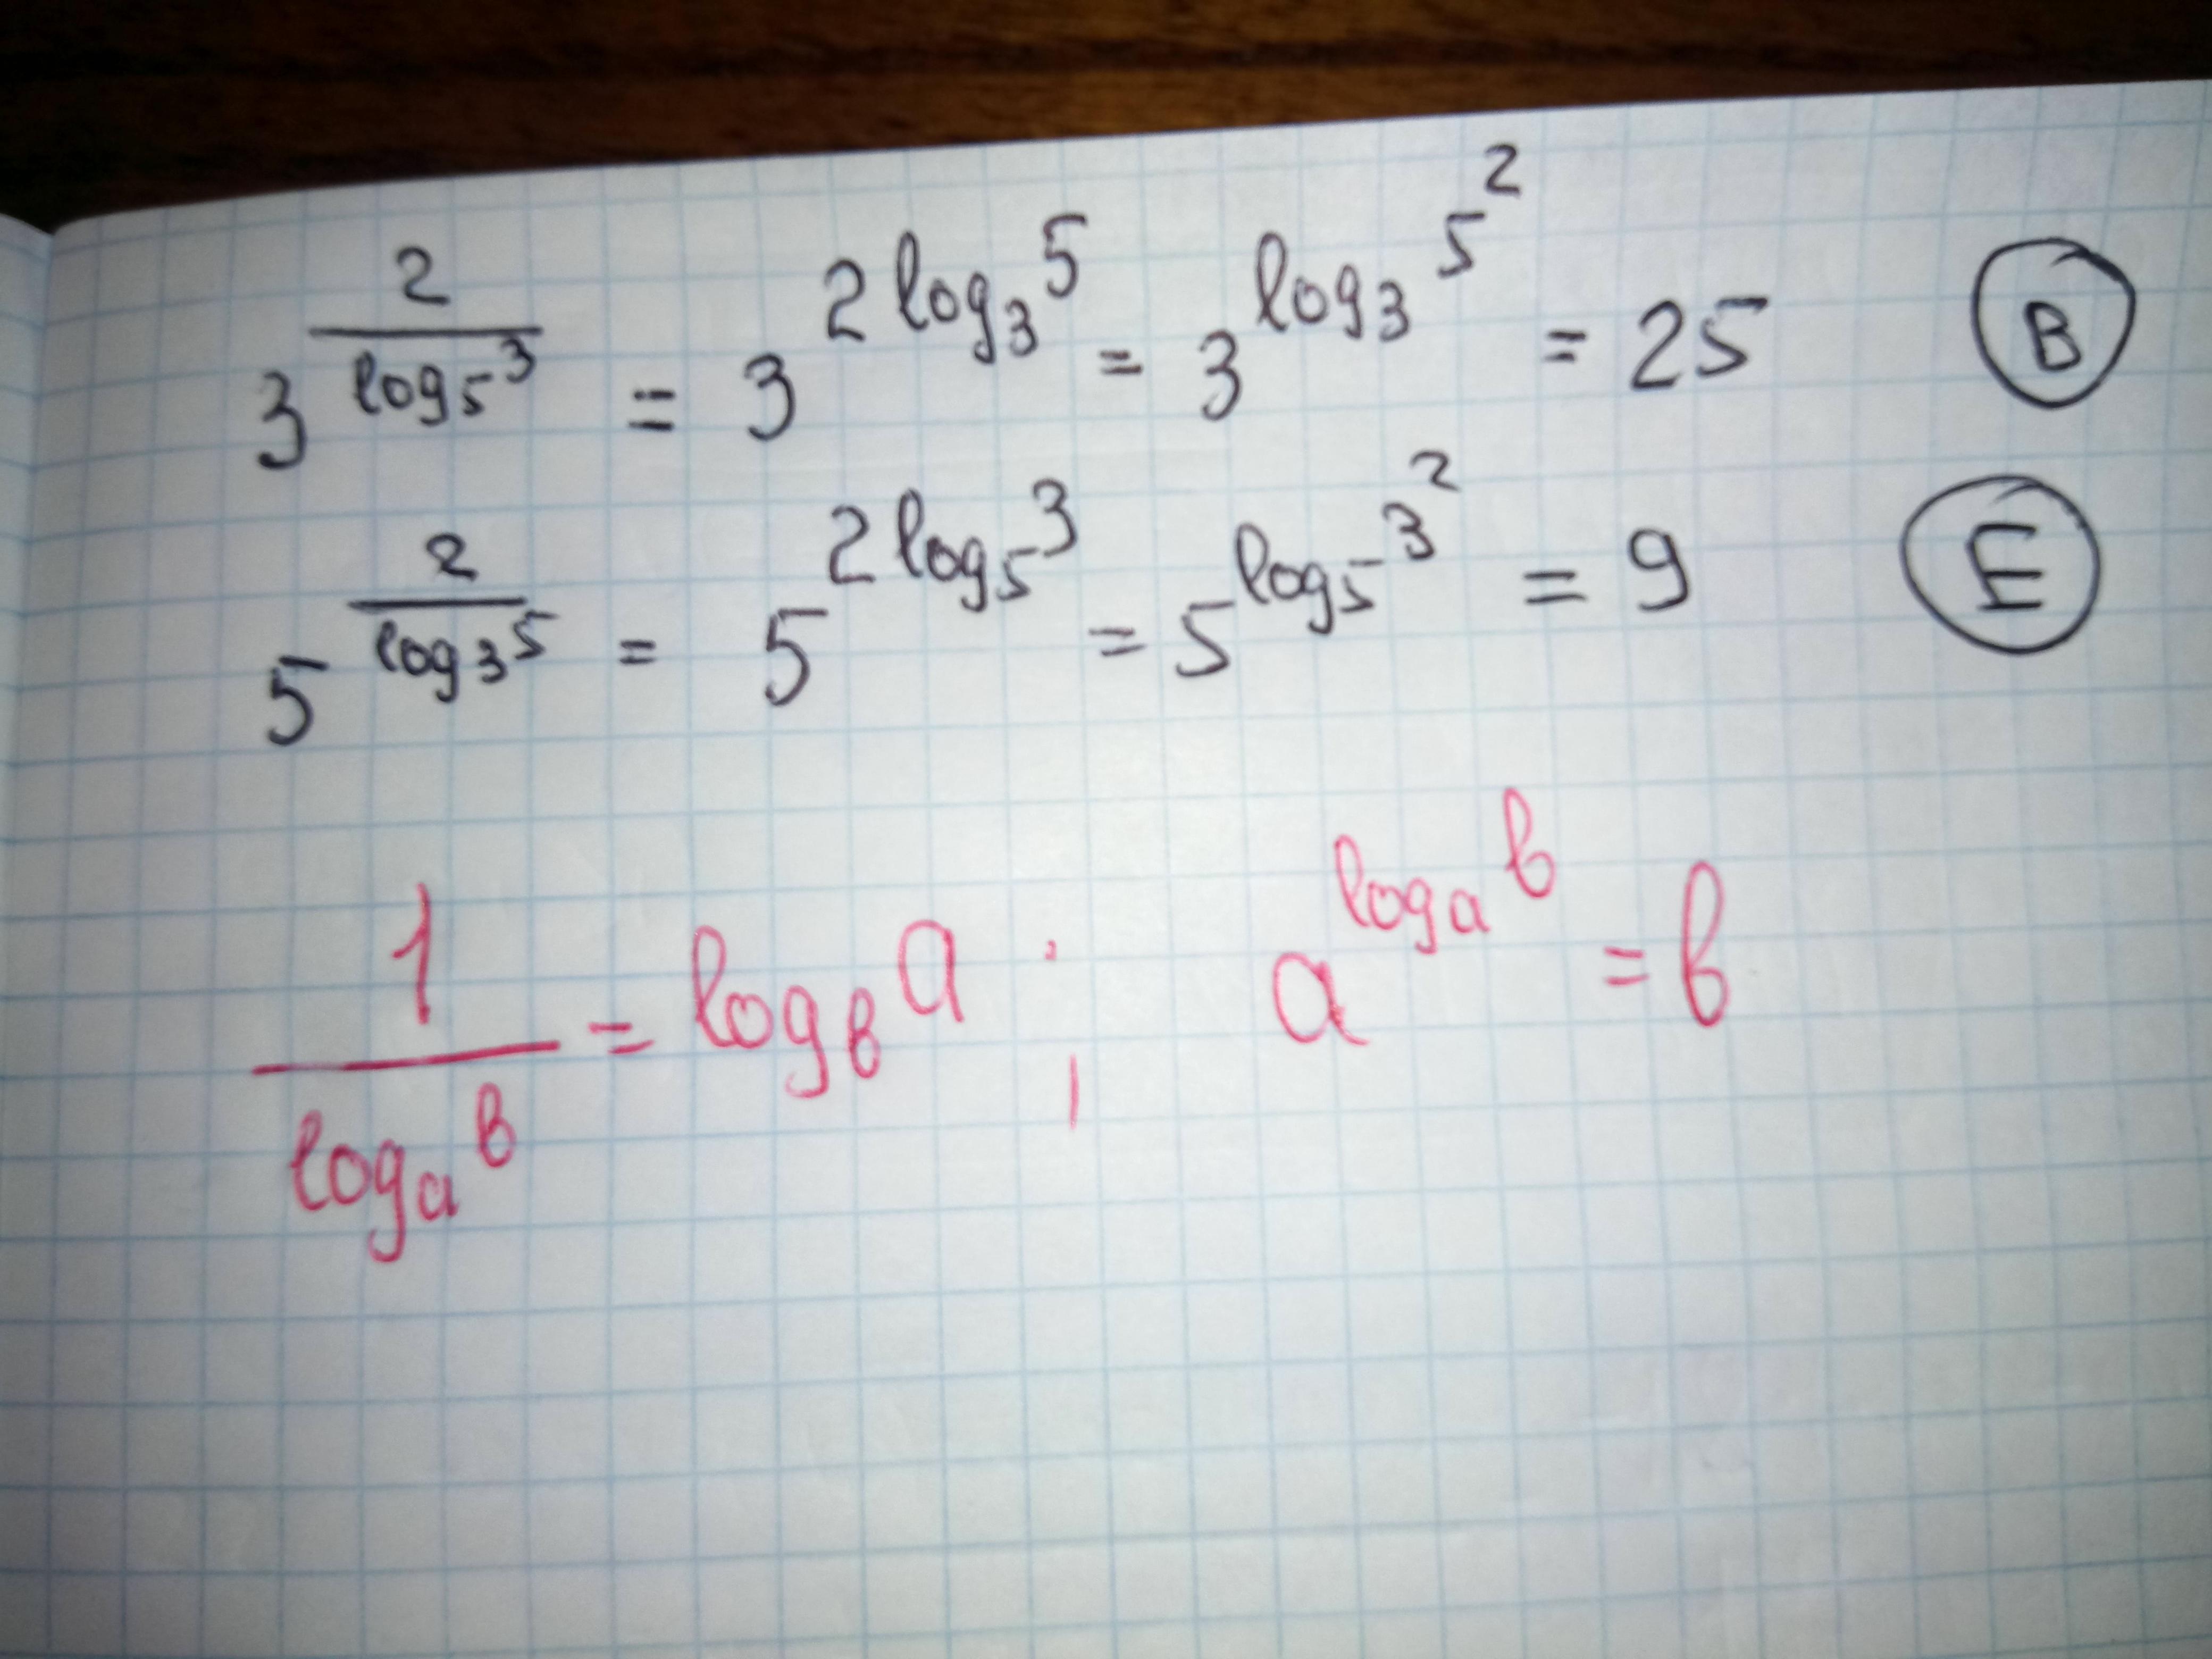 3^(2/log₅3) = 3^(2log₃5) = 3^(log₃5²) = 25 В
5^(2/log₃5) = 5^(2log₅3) = 5^(log₅3²) = 9 Е
1/logₐb = log_b a ; a^(logₐb) = b